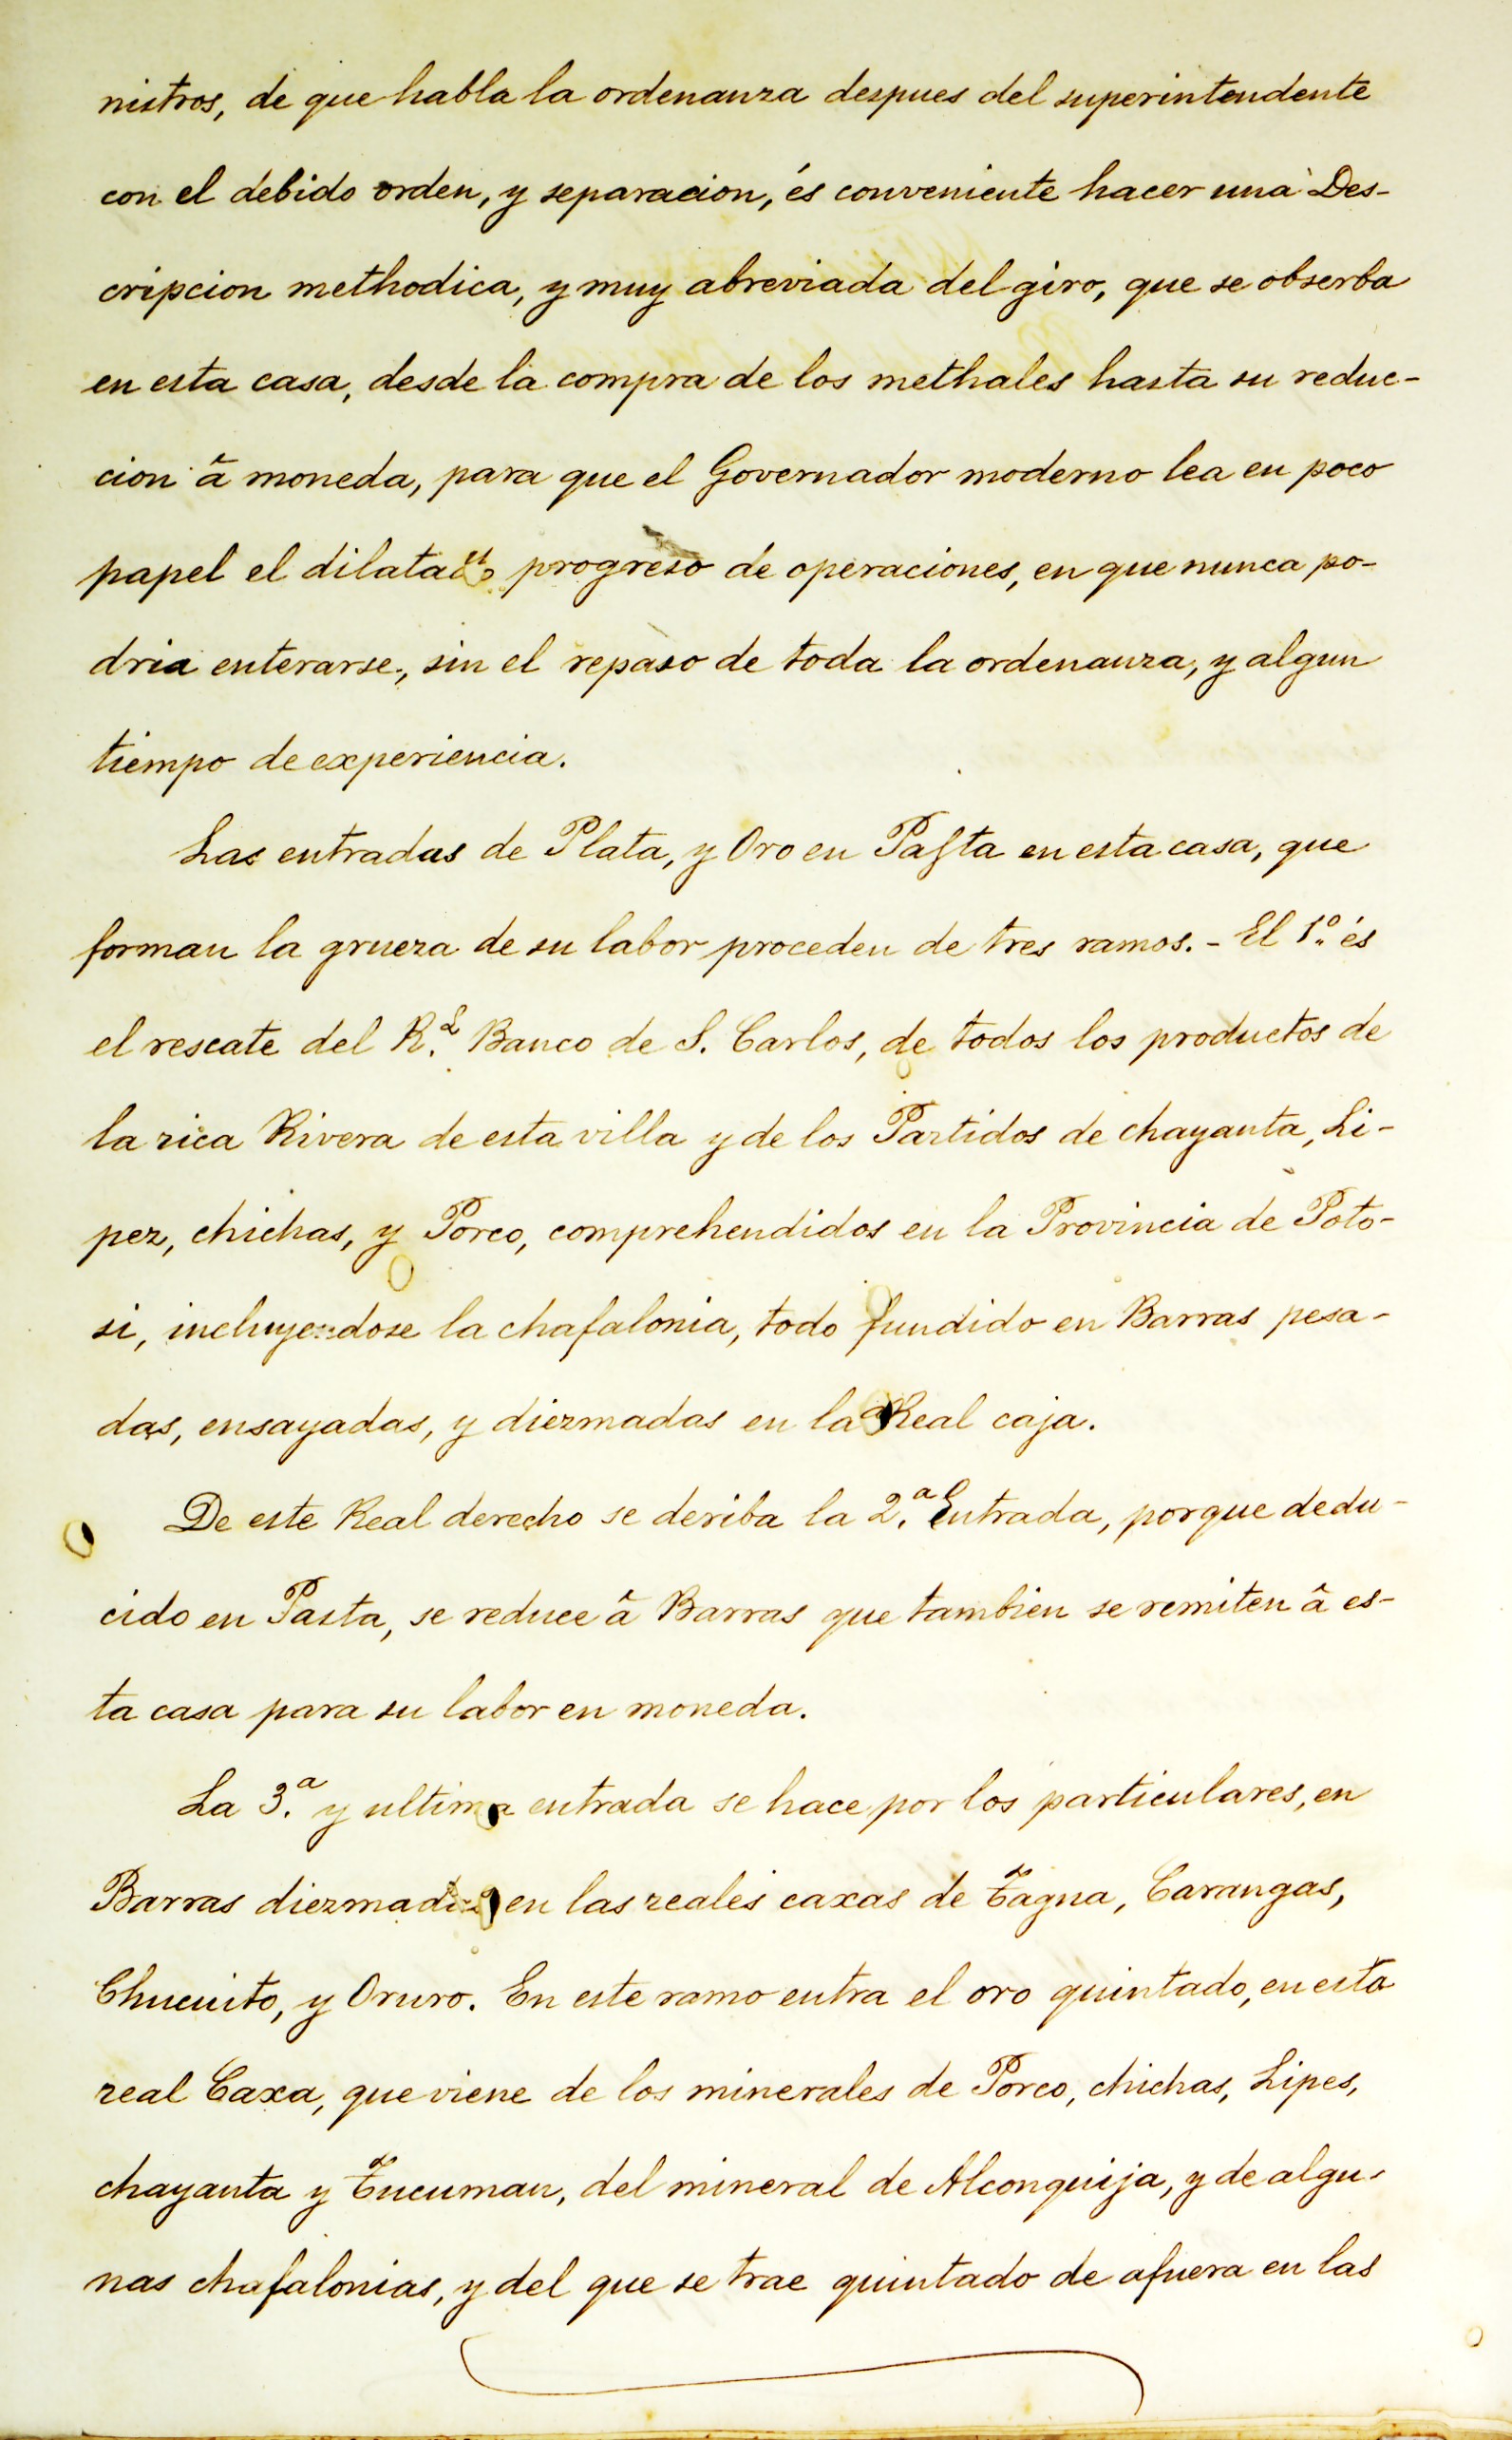 nistros, de que habla la ordenanza despues del superintendente
con el debido orden, y separacion, és conveniente hacer una Des-
cripcion methodica, y muy abreviada del giro, que se obserba
en esta casa, desde la compra de los methales hasta su reduc-
cion â moneda, para que el Governador moderno lea en poco
papel el dilatado progreso de operaciones, en que nunca po-
dria enterarse, sin el repaso de toda la ordenanza, y algun
tiempo de experiencia.
Las entradas de Plata, y Oro en Pasta en esta casa, que
forman la grueza de su labor proceden de tres ramos. - El 1º. és
el rescate del R.l Banco de S. Carlos, de todos los productos de
la rica Rivera de esta villa y de los Partidos de chayanta, Li-
pez, chichas, y Porco, comprehendidos en la Provincia de Poto-
si, incluyendose la chafalonia, todo fundido en Barras pesa-
das, ensayadas, y diezmadas en la Real caja.
De este Real derecho se deriba la 2.a Entrada, porque dedu-
cido en Pasta, se reduce â Barras que tambien se remiten â es-
ta casa para su labor en moneda.
La 3.a y ultima entrada se hace por los particulares, en
Barras diezmadas en las reales caxas de Tagna, Carangas,
Chucuito, y Oruro. En este ramo entra el oro quintado, en esta
real Caxa, que viene de los minerales de Porco, chichas, Lipes,
chayanta y Tucuman, del mineral de Alconquija, y de algu-
nas chafalonias, y del que se trae quintado de afuera en las